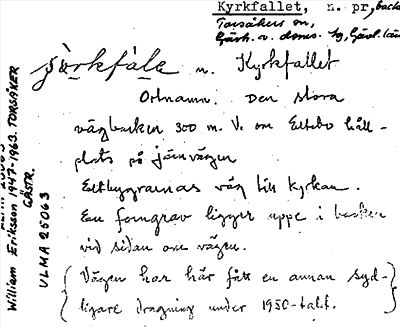 Kyrkfallet, n. pr, backe
Torsåkers sn,
Gästr. v. doms. hg, Gävl. län
n. Kyrkfallet
Ortnamn. Den stora
vägbacken 300 m. V. om Eltebo håll-
plats på järnvägen
Eltbyggrarnas väg till kyrkan.
En forngrav ligger uppe i backen
vid sidan om vägen.
(Vägen har här fått en annan syd-
ligare dragning under 1950-talet.)
William Eriksson 1947-1963. TORSÅKER
GÄSTR.
ULMA 25063